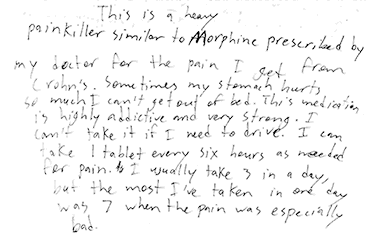 This is a heavy
painkiller similar to Morphine prescribed by
my doctor for the pain I get from
Crohn's. Sometimes my stomach hurts
so much I can't get out of bed. This medication
is highly addictive and very strong. I
can't take it if I need to drive. I can
take 1 tablet every six hours as needed
for pain. I usually take 3 in a day,
but the most I've taken in one day
was 7 when the pain was especially
bad.